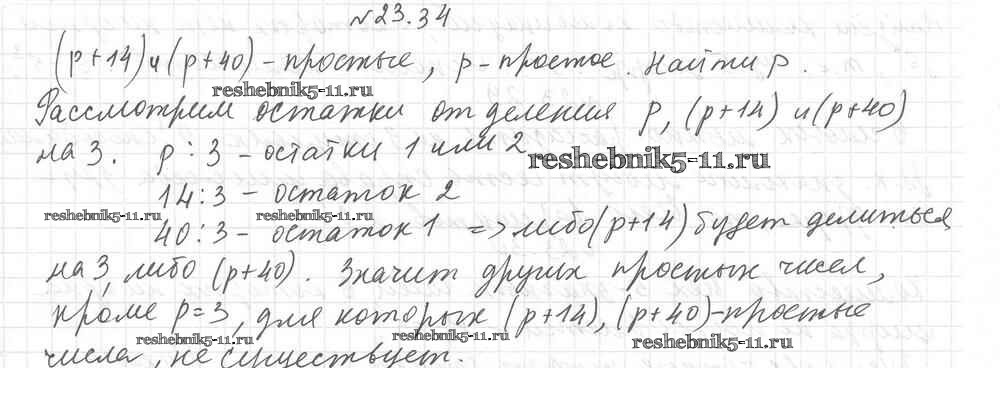 №23.34
(p+14) и (p+40) - простые, p - простое. Найти p.
reshebnik5-11.ru
Рассмотрим остатки от деления p, (p+14) и (p+40)
на 3. p:3 - остатки 1 или 2
reshebnik5-11.ru
14:3 - остаток 2
reshebnik5-11.ru reshebnik5-11.ru
40:3 - остаток 1 => либо (p+14) будет делиться
на 3, либо (p+40). Значит других простых чисел,
кроме p=3, для которых (p+14), (p+40) - простые
reshebnik5-11.ru reshebnik5-11.ru reshebnik5-11.ru
числа, не существует.